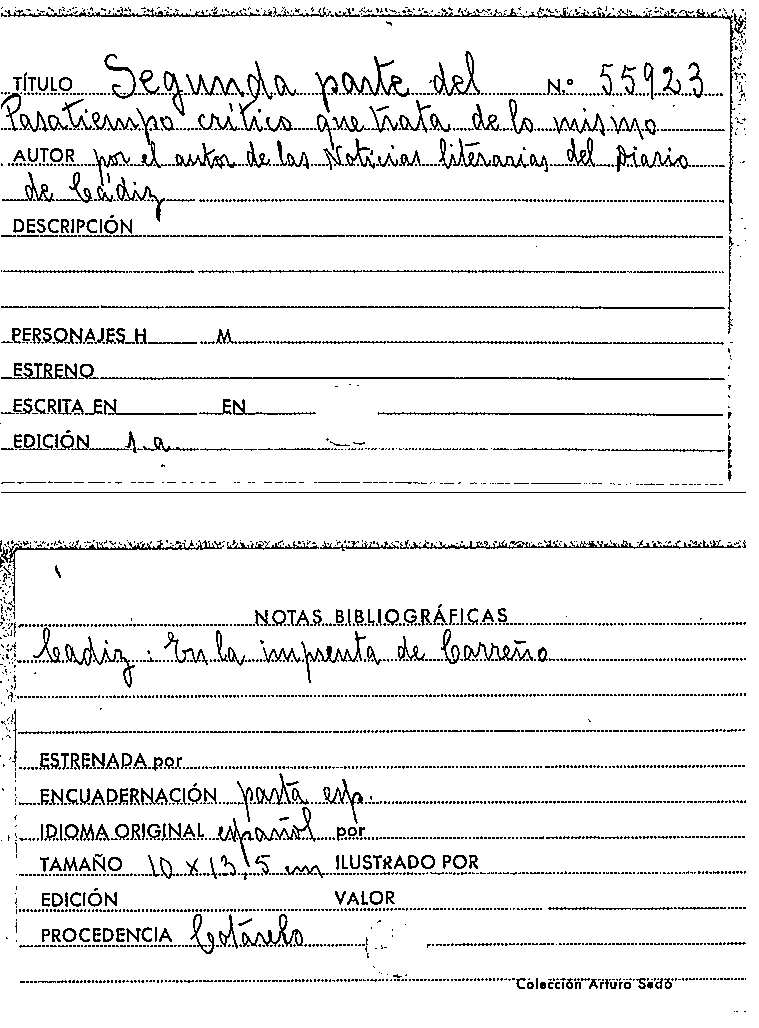 TÍTULO Segunda parte del N.º 55923
Pasatiempo crítico que trata de lo mismo
AUTOR por el autor de las Noticias literarias del Diario
de Cádiz
DESCRIPCIÓN
PERSONAJES H M
ESTRENO
ESCRITA EN EN
EDICIÓN s.a.
NOTAS BIBLIOGRÁFICAS
Cadiz: En la imprenta de Carreño
ESTRENADA por
ENCUADERNACIÓN pasta esp.
IDIOMA ORIGINAL español por
TAMAÑO 10 x 13,5 cm ILUSTRADO POR
EDICIÓN VALOR
PROCEDENCIA Cotarelo
Colección Arturo Sedó